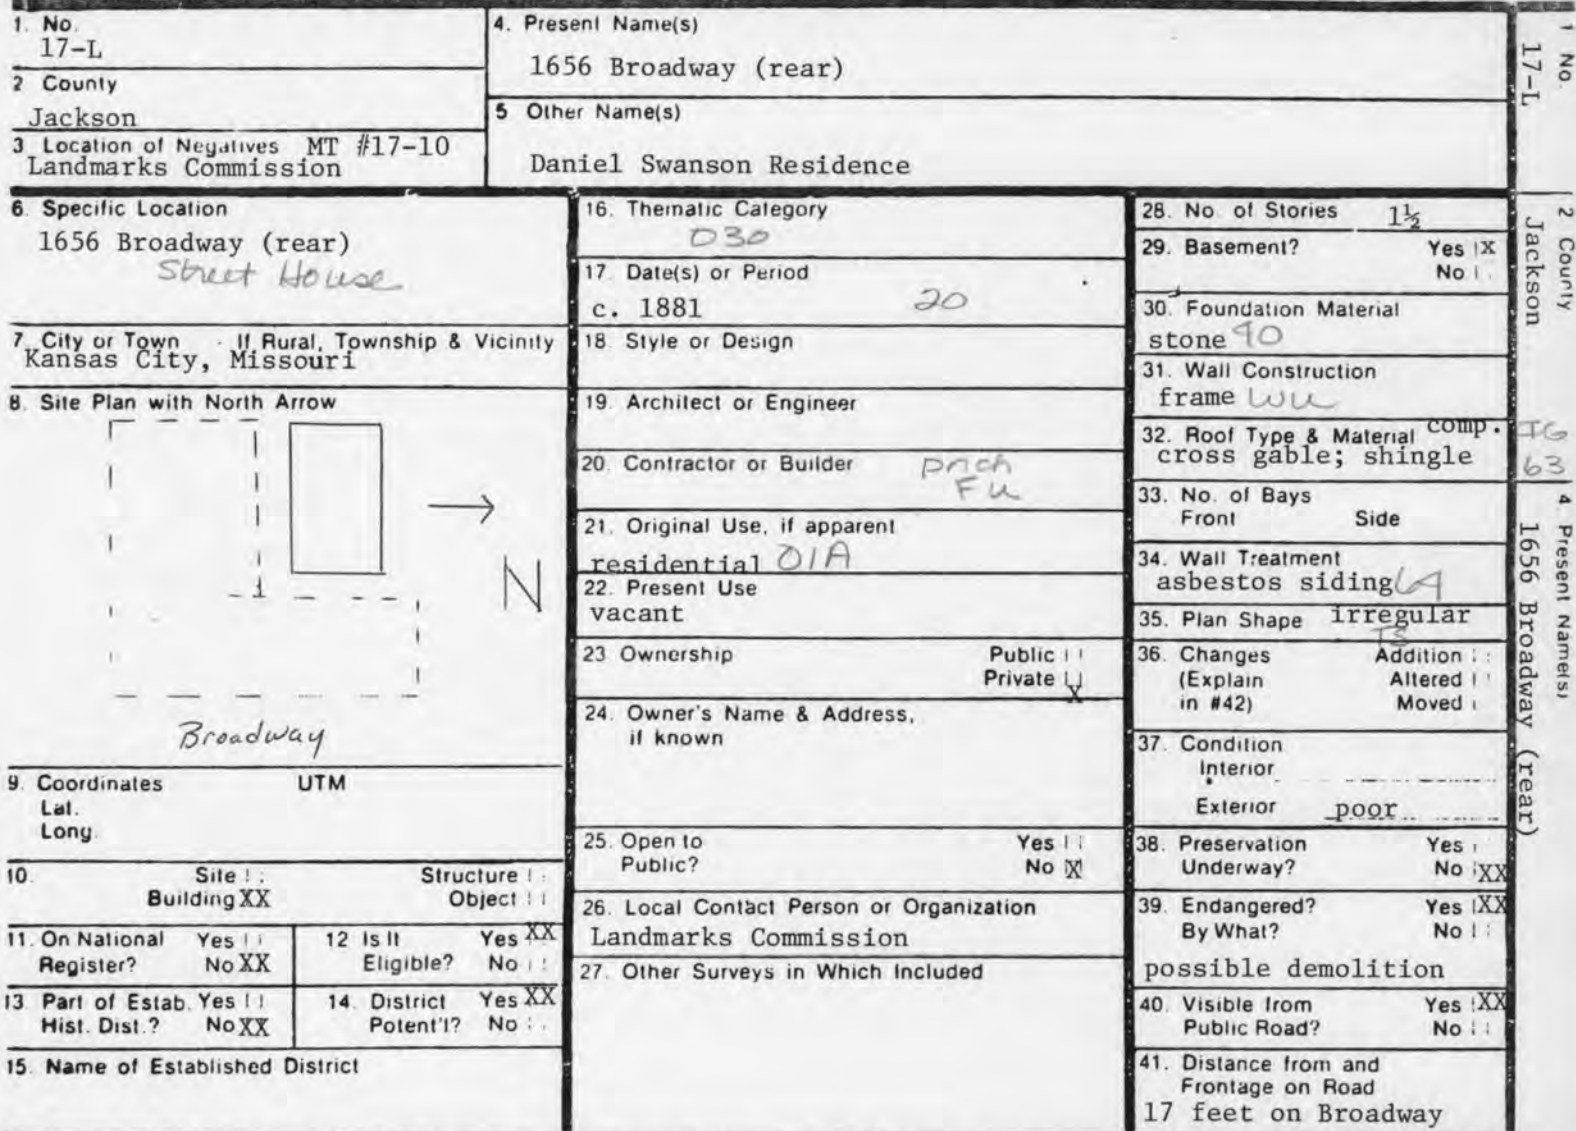 1. No.
17-L
2 County
Jackson
3 Location of Negatives MT #17-10
Landmarks Commission
4. Present Name(s)
1656 Broadway (rear)
5 Other Name(s)
Daniel Swanson Residence
6. Specific Location
1656 Broadway (rear)
Street House
7. City or Town If Rural, Township & Vicinity
Kansas City, Missouri
8. Site Plan with North Arrow
N
Broadway
9. Coordinates UTM
Lat.
Long.
10. Site Structure
Building XX Object
11. On National Yes
Register? No XX
12 Is It Yes XX
Eligible? No
13. Part of Estab. Yes
Hist. Dist.? No XX
14. District Yes XX
Potent'l? No
15. Name of Established District
16. Thematic Category
030
17. Date(s) or Period
c. 1881 20
18. Style or Design
19. Architect or Engineer
20. Contractor or Builder
21. Original Use, if apparent
residential 01A
22. Present Use
vacant
23 Ownership Public
Private X
24. Owner's Name & Address,
if known
25. Open to Yes
Public? No X
26. Local Contact Person or Organization
Landmarks Commission
27. Other Surveys in Which Included
28. No. of Stories 1½
29. Basement? Yes X
No
30. Foundation Material
stone 40
31. Wall Construction
frame
32. Roof Type & Material comp.
cross gable; shingle
33. No. of Bays
Front Side
34. Wall Treatment
asbestos siding
35. Plan Shape irregular
36. Changes Addition
(Explain Altered
in #42) Moved
37. Condition
Interior
Exterior poor
38. Preservation Yes
Underway? No XX
39. Endangered? Yes XX
By What? No
possible demolition
40. Visible from Yes XX
Public Road? No
41. Distance from and
Frontage on Road
17 feet on Broadway
1 No.
17-L
2 County
Jackson
63
4 Present Name(s)
1656 Broadway (rear)